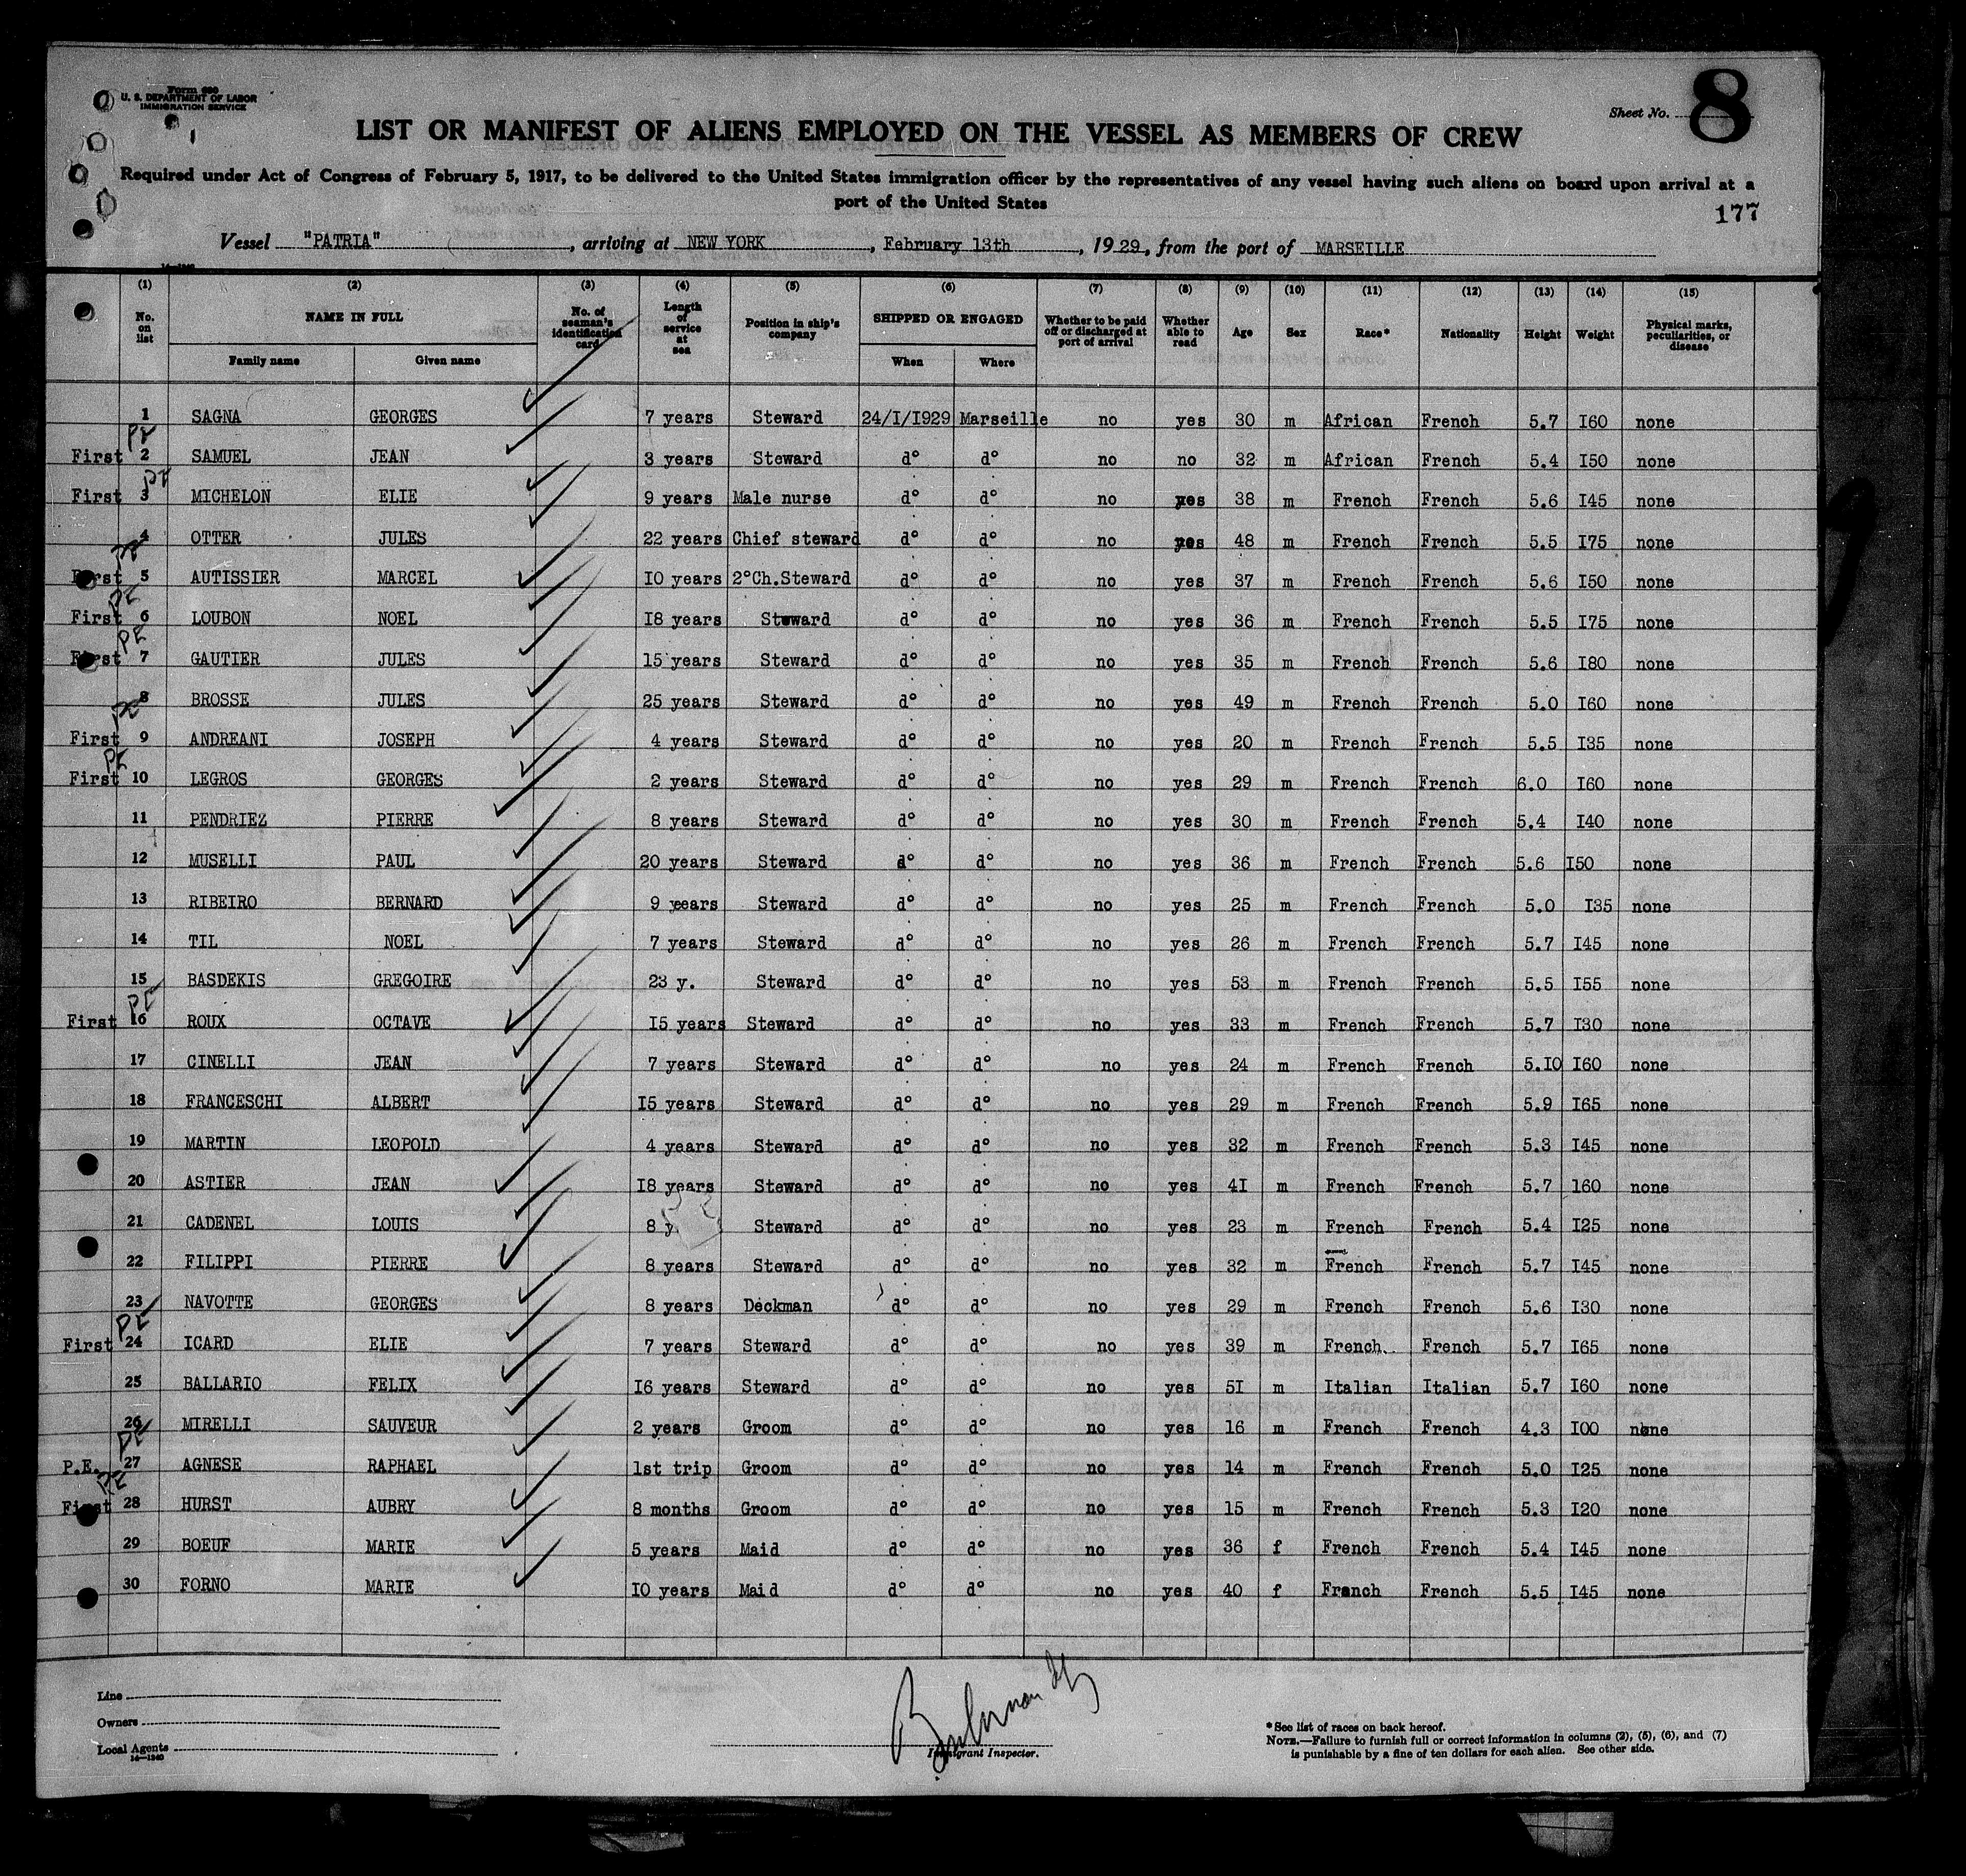 Form 680
U. S. DEPARTMENT OF LABOR
IMMIGRATION SERVICE
Sheet No. 8
LIST OR MANIFEST OF ALIENS EMPLOYED ON THE VESSEL AS MEMBERS OF CREW
Required under Act of Congress of February 5, 1917, to be delivered to the United States immigration officer by the representatives of any vessel having such aliens on board upon arrival at a
port of the United States
177
Vessel "PATRIA", arriving at NEW YORK, February 13th, 1929, from the port of MARSEILLE
(1) (2) (3) (4) (5) (6) (7) (8) (9) (10) (11) (12) (13) (14) (15)
No. on list NAME IN FULL No. of seaman's identification card Length of service at sea Position in ship's company SHIPPED OR ENGAGED Whether to be paid off or discharged at port of arrival Whether able to read Age Sex Race* Nationality Height Weight Physical marks, peculiarities, or disease
Family name Given name When Where
1 SAGNA GEORGES 7 years Steward 24/I/I929 Marseille no yes 30 m African French 5.7 I60 none
PE
First 2 SAMUEL JEAN 3 years Steward d° d° no no 32 m African French 5.4 I50 none
PE
First 3 MICHELON ELIE 9 years Male nurse d° d° no yes 38 m French French 5.6 I45 none
4 OTTER JULES 22 years Chief steward d° d° no yes 48 m French French 5.5 I75 none
PE
First 5 AUTISSIER MARCEL IO years 2°Ch.Steward d° d° no yes 37 m French French 5.6 I50 none
PE
First 6 LOUBON NOEL I8 years Steward d° d° no yes 36 m French French 5.5 I75 none
PE
First 7 GAUTIER JULES 15 years Steward d° d° no yes 35 m French French 5.6 I80 none
8 BROSSE JULES 25 years Steward d° d° no yes 49 m French French 5.0 I60 none
PE
First 9 ANDREANI JOSEPH 4 years Steward d° d° no yes 20 m French French 5.5 I35 none
PE
First 10 LEGROS GEORGES 2 years Steward d° d° no yes 29 m French French 6.0 I60 none
11 PENDRIEZ PIERRE 8 years Steward d° d° no yes 30 m French French 5.4 I40 none
12 MUSELLI PAUL 20 years Steward d° d° no yes 36 m French French 5.6 I50 none
13 RIBEIRO BERNARD 9 yeears Steward d° d° no yes 25 m French French 5.0 I35 none
14 TIL NOEL 7 years Steward d° d° no yes 26 m French French 5.7 I45 none
15 BASDEKIS GREGOIRE 23 y. Steward d° d° no yes 53 m French French 5.5 I55 none
PE
First 16 ROUX OCTAVE I5 years Steward d° d° no yes 33 m French French 5.7 I30 none
17 CINELLI JEAN 7 years Steward d° d° no yes 24 m French French 5.IO I60 none
18 FRANCESCHI ALBERT I5 years Steward d° d° no yes 29 m French French 5.9 I65 none
19 MARTIN LEOPOLD 4 years Steward d° d° no yes 32 m French French 5.3 I45 none
20 ASTIER JEAN I8 years Steward d° d° no yes 4I m French French 5.7 160 none
21 CADENEL LOUIS 8 y. Steward d° d° no yes 23 m French French 5.4 I25 none
22 FILIPPI PIERRE 8 years Steward d° d° no yes 32 m French French 5.7 I45 none
23 NAVOTTE GEORGES 8 years Deckman d° d° no yes 29 m French French 5.6 I30 none
PE
First 24 ICARD ELIE 7 years Steward d° d° no yes 39 m French French 5.7 I65 none
25 BALLARIO FELIX I6 years Steward d° d° no yes 5I m Italian Italian 5.7 I60 none
26 MIRELLI SAUVEUR 2 years Groom d° d° no yes 16 m French French 4.3 I00 none
PE
P.E. 27 AGNESE RAPHAEL 1st trip Groom d° d° no yes 14 m French French 5.0 I25 none
PE
First 28 HURST AUBRY 8 months Groom d° d° no yes 15 m French French 5.3 I20 none
29 BOEUF MARIE 5 years Maid d° d° no yes 36 f French French 5.4 I45 none
30 FORNO MARIE IO years Maid d° d° no yes 40 f French French 5.5 I45 none
Line
Owners
Local Agents
14—1240
Immigrant Inspector.
*See list of races on back hereof.
NOTE.—Failure to furnish full or correct information in columns (2), (5), (6), and (7)
is punishable by a fine of ten dollars for each alien. See other side.